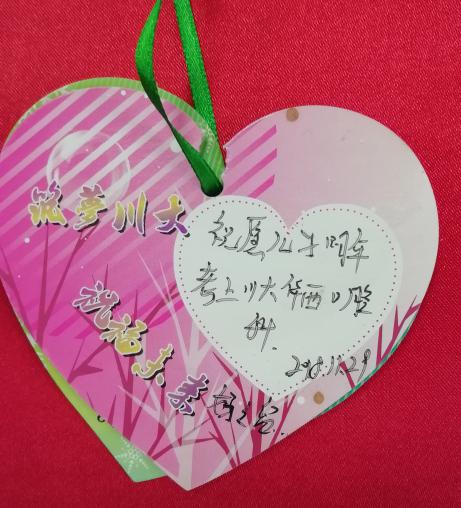 筑梦川大
祝福未来
祝愿儿子明年
考上川大华西口腔
科.
2018.11.29